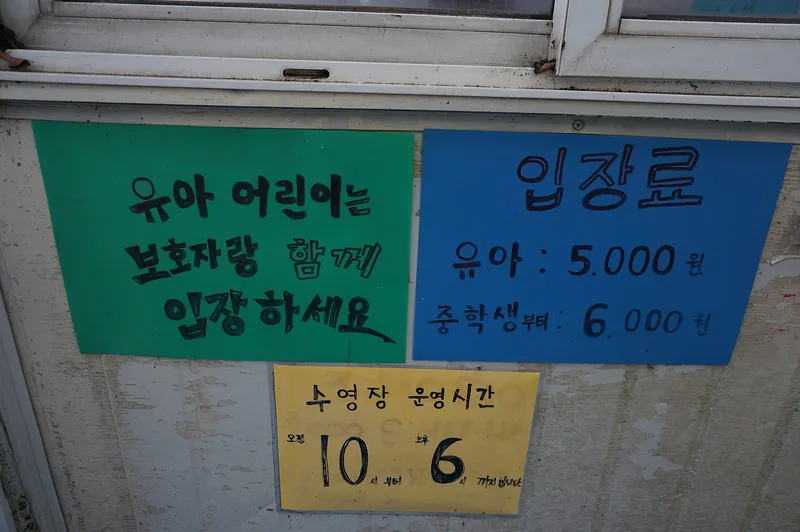 유아 어린이는
보호자랑 함께
입장하세요
입장료
유아 : 5.000원
중학생부터 : 6.000원
수영장 운영시간
오전 10시부터 오후 6시 까지입니다